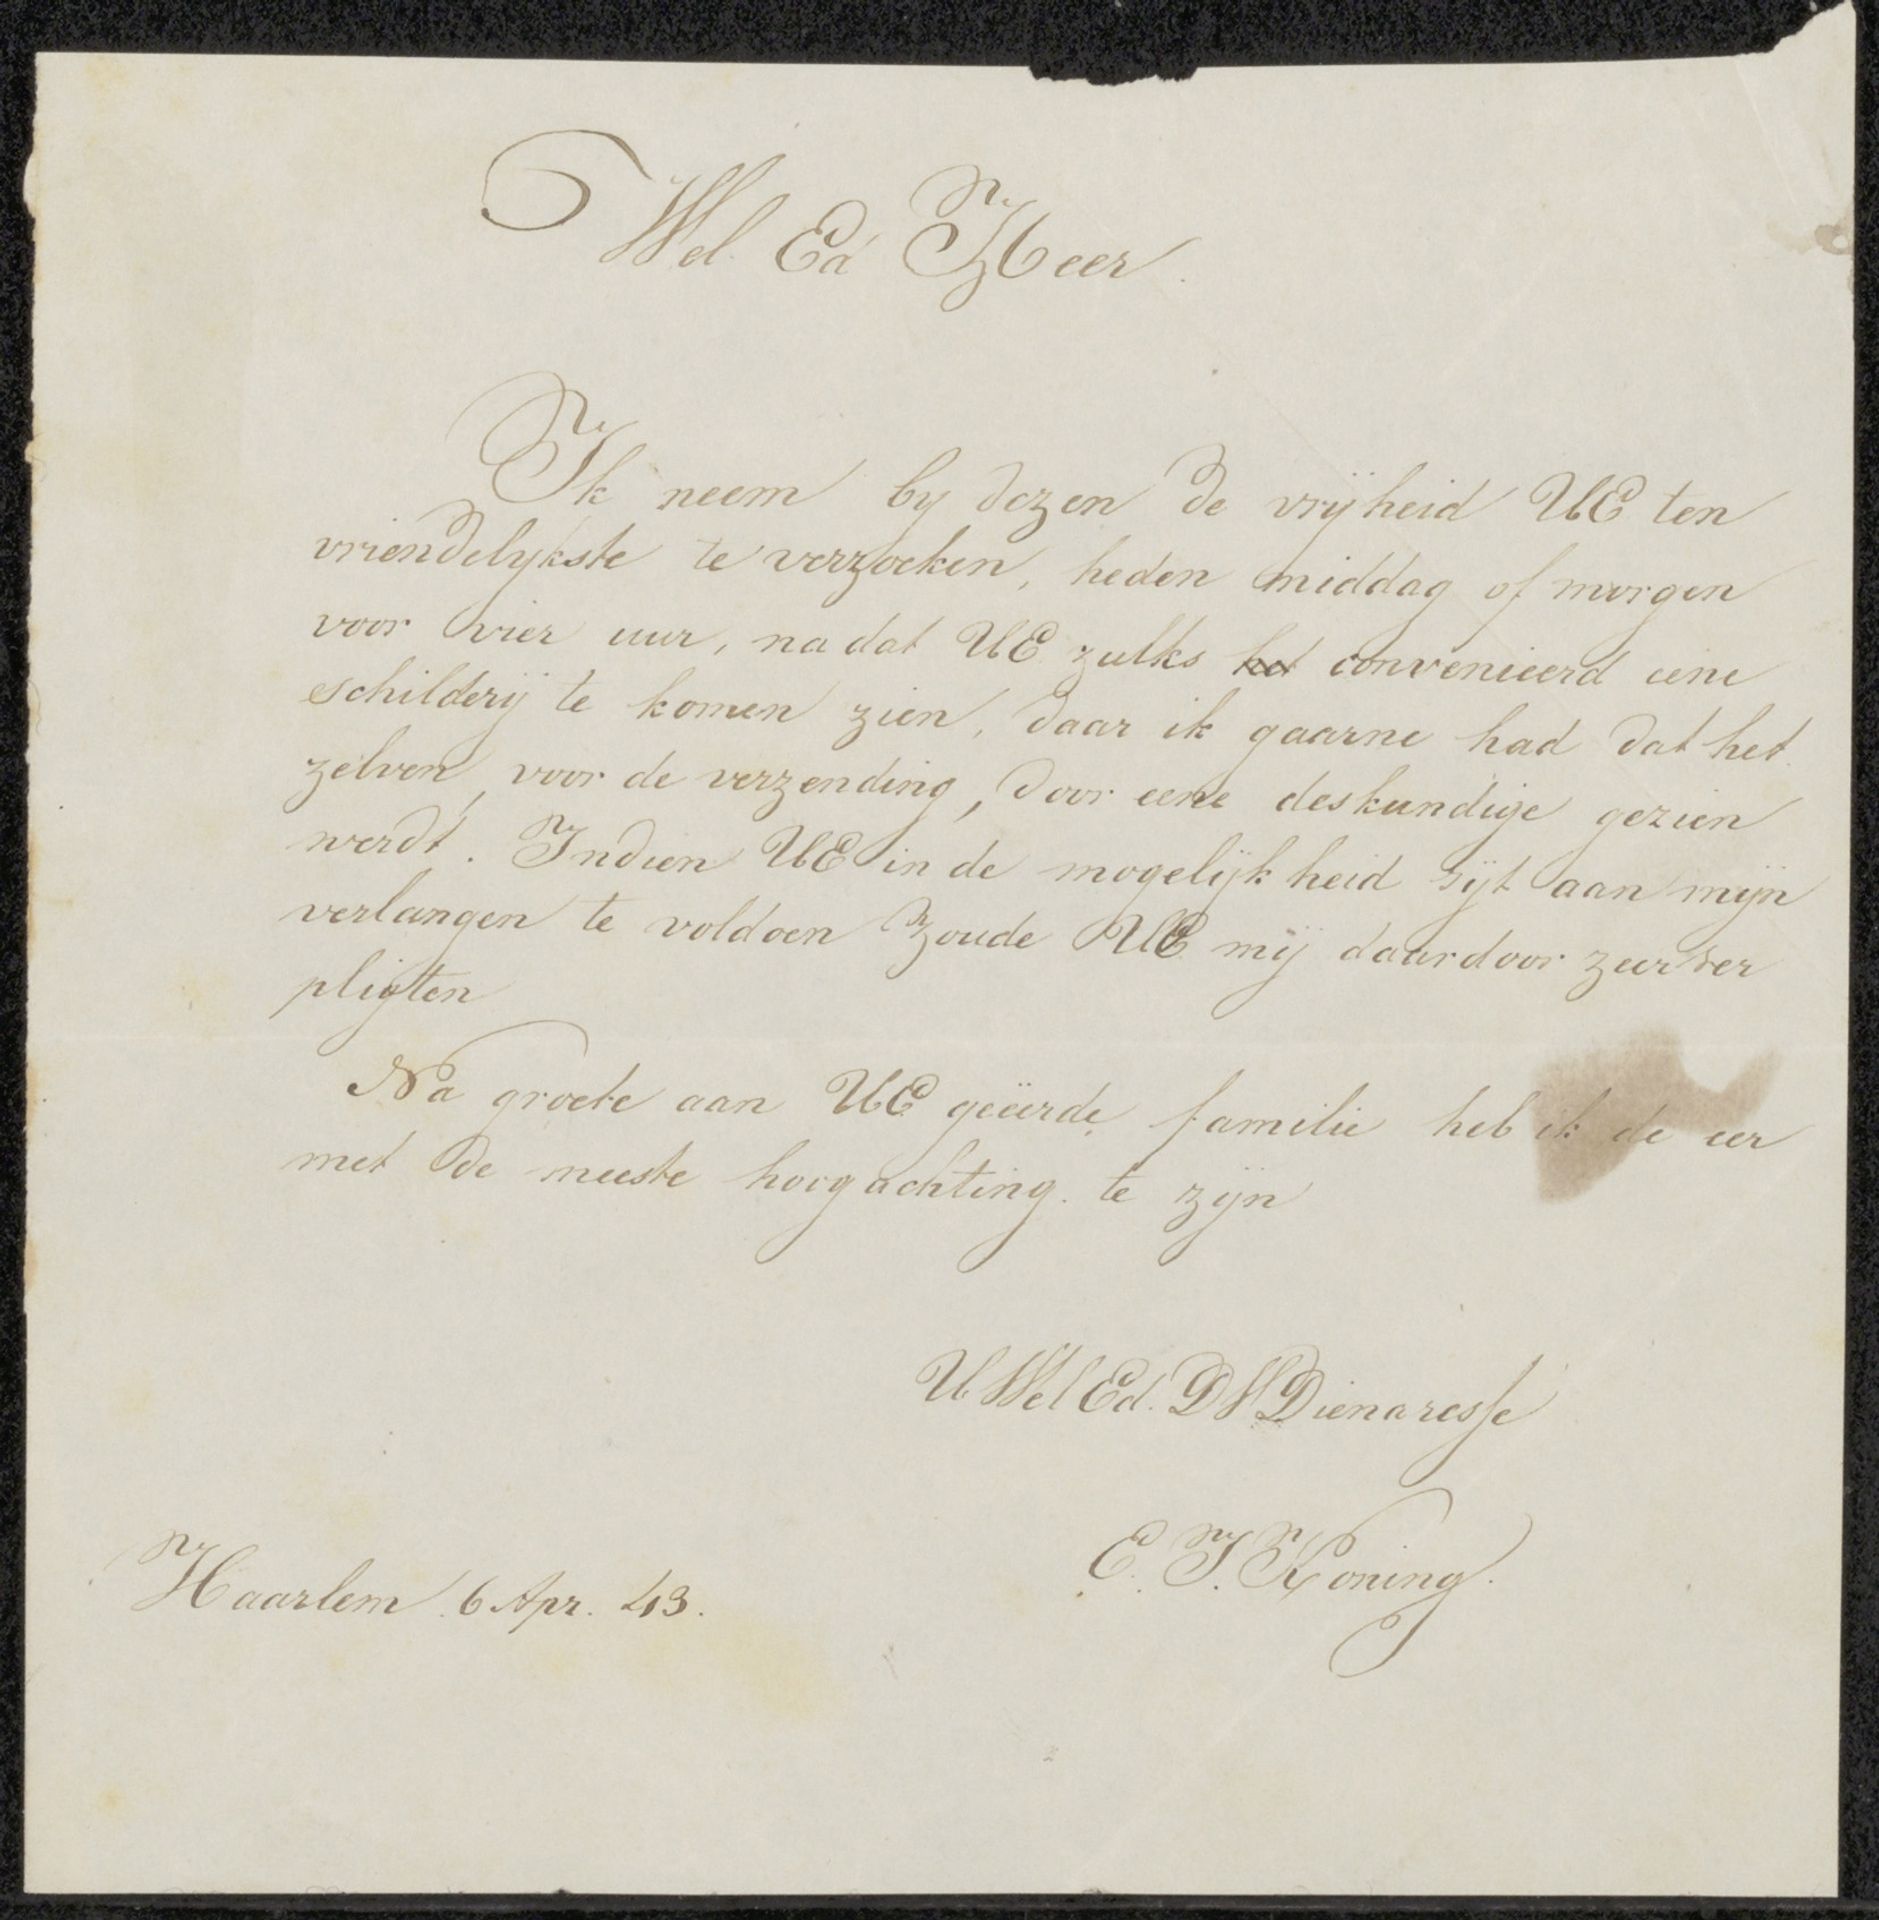 Wel Ed Heer.
Ik neem by dezen de vrijheid UE ten
vriendelykste te verzoeken, heden middag of morgen
voor vier uur, na dat UE zulks het convenieerd eene
schilderij te komen zien, daar ik gaarne had dat het
zelven, voor de verzending, door eene deskundige gezien
werdt. Indien UE in de mogelijkheid zijt aan mijn
verlangen te voldoen zoude UE mij daardoor zeer ver
pligten
Na groete aan UE geëerde familie heb ik de eer
met de meeste hoogachting. te zijn
U Wel Ed. DW Dienaresse
E. J. Koning.
Haarlem. 6 Apr. 43.